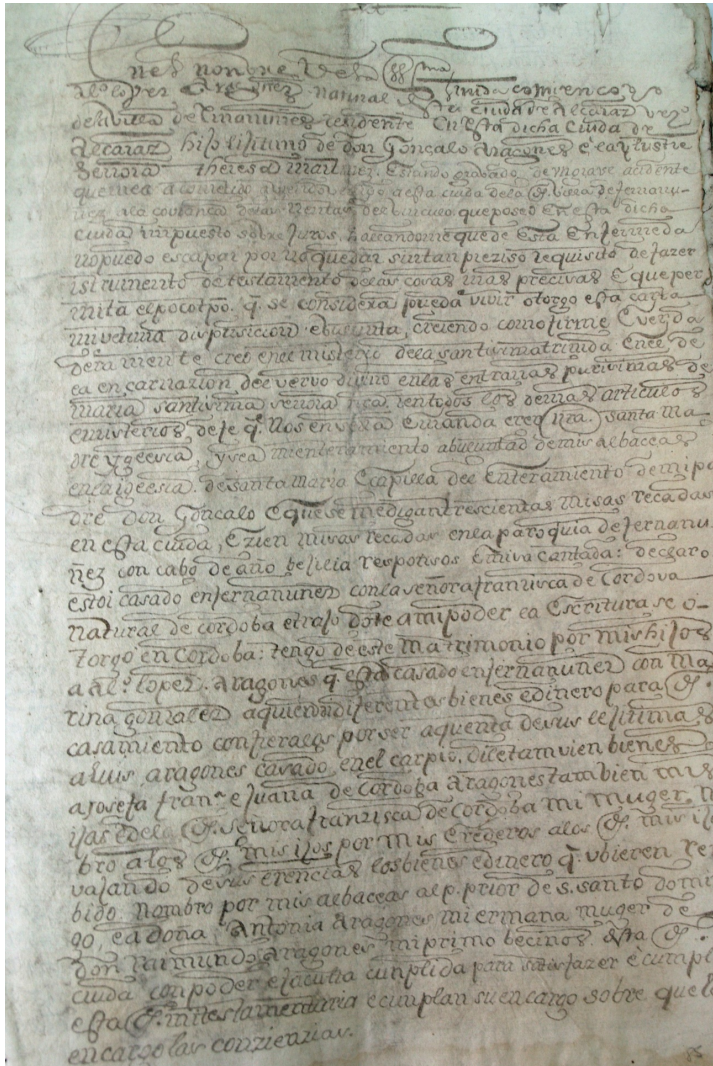 En el nombre de la SSma
trinida comienco yo
al.º lopez Aragones natural de esta ciuda de Alcaraz vezº
de la villa de Fernannunes residente En esta dicha ciuda de
Alcaraz hijo lijitimo de don Gonçalo Aragones e la ylustre
Señora theresa martinez. Estando grabado de un grave acidente
que me a acometido aviendo venido a esta ciuda de la villa de fernannu-
nez a la cobranca de las Rentas del binculo que poseo En esta dicha
ciuda impuesto sobre Juros, hallandome que de Esta Enfermeda
no puedo escapar por no quedar sin tan preziso requisito de fazer
istrumento de testamento de las cosas mas precisas E que per
mita el poco tpo. q. se considera pueda vivir otorgo esta carta
mi vltima disposicion e boluntad, creiendo como firme E verda
dera mente creo en el misterio de la santisima trinida En el de
la encarnazion del vervo divino en las entrañas purisimas de
maria santisima señora nra. i en todos los demas articulos
e misterios de fe q. Nos enseña E manda creer Nra. santa Ma
dre ygelsia, y sea mi enteramiento a boluntad de mis albaceas
en la igelsia de santa Maria E capilla del Enteramiento de mi pa
dre don Gonçalo E que se me digan trescientas misas recadas
en esta ciuda, E zien misas recadas en la paroquia de fernannu
ñez con cabo de año bejilia responsos E misa cantada: declaro
estoi casado en fernannunez con la señora franzisca de Cordova
natural de cordoba e trajo dote a mi poder la Escritura se o-
torgo en Cordoba: tengo de este matrimonio por mis hijos
a al.º lopez Aragones q. esta casado en fernannunez con Ma
rina gonzalez a quien di diferentes bienes e dinero para
casamiento confieralas por ser a quenta de sus lejitimas
a luis aragones casado en el carpio, dile tamvien bienes
a Josefa fran.ca e Juana de Cordoba Aragones tambien mis
ijas e de la señora franzisca de Cordoba mi muger. N
bro a los mis ijos por mis Erederos a los mis ijos
vajando de sus erencias los bienes e dinero q. vbieren rezi
bido. Nombro por mis albaceas al p. prior de s. santo domin
go, e a Doña Antonia Aragones mi ermana muger de
don Raimundo Aragones mi primo becinos desta
ciuda con poder e faculta cunplida para satisfazer e cunplir
esta mi testamentaria e cunplan su encargo sobre que le
encargo las conzienzias.